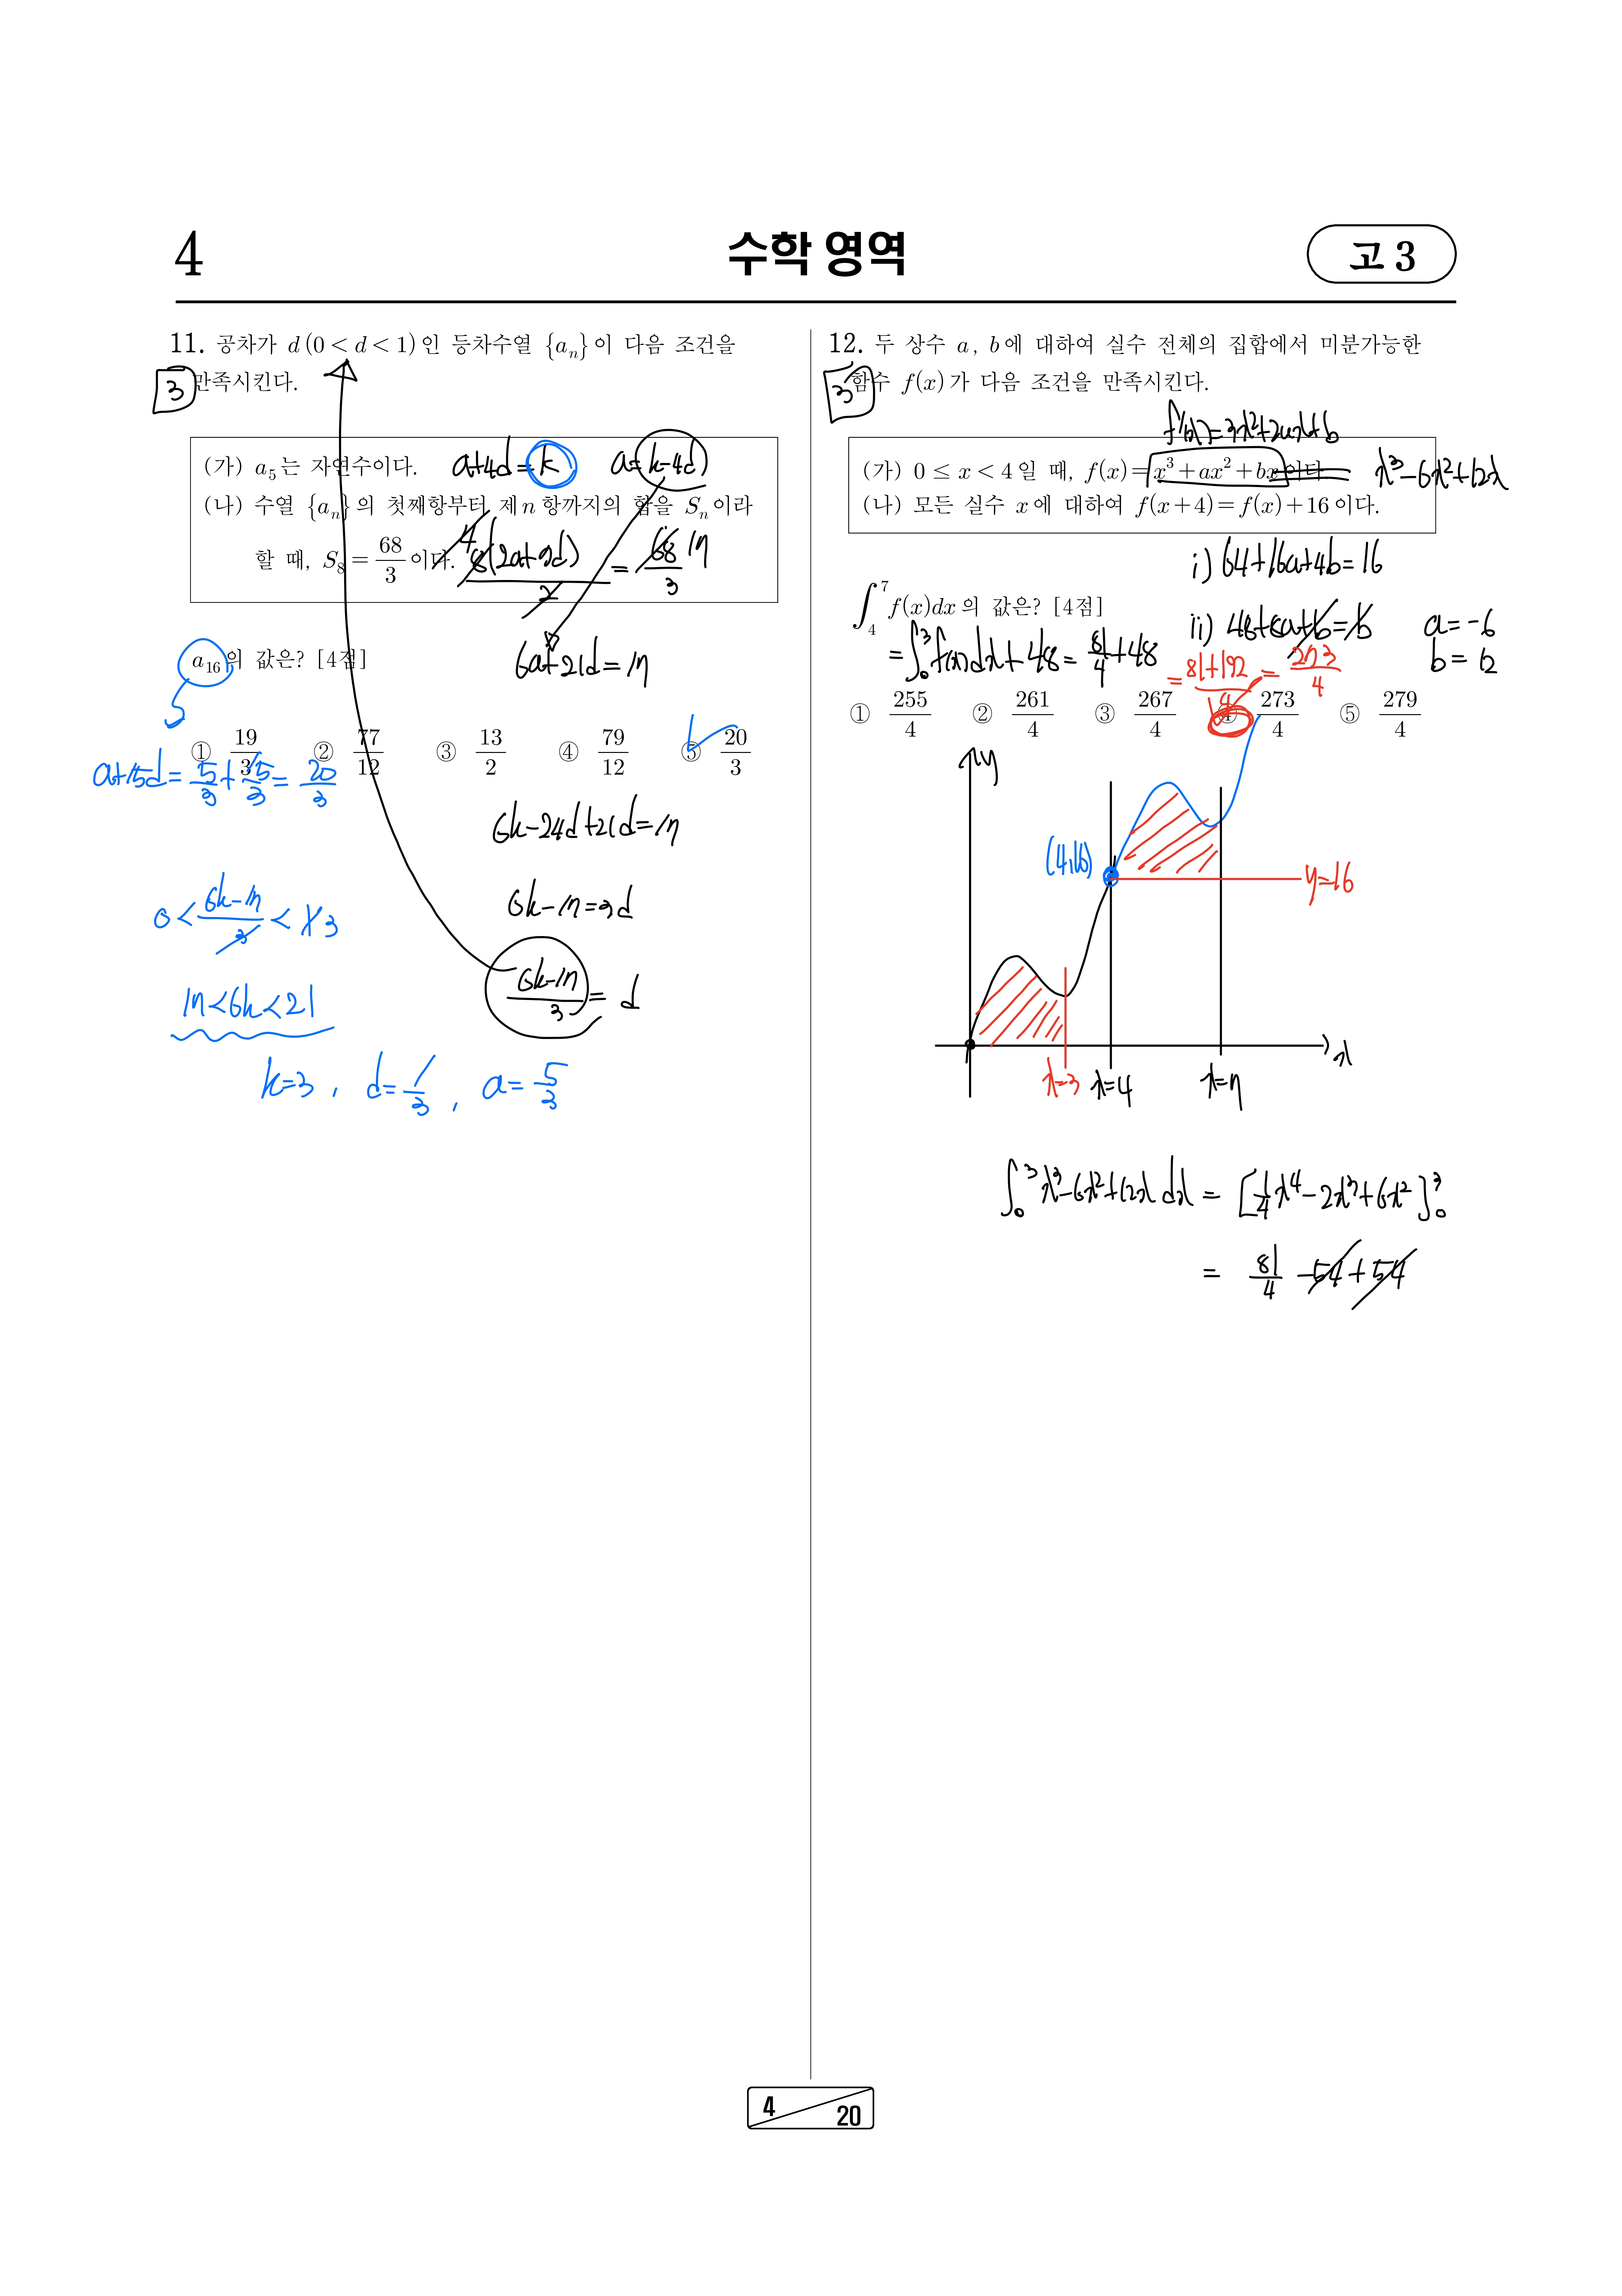 4
수학 영역
고 3
11. 공차가 d(0 < d < 1)인 등차수열 {aₙ}이 다음 조건을
만족시킨다.
3
(가) a₅는 자연수이다.
a+4d=k
a=k-4d
(나) 수열 {aₙ}의 첫째항부터 제n항까지의 합을 Sₙ이라
할 때, S₈ = 68/3 이다.
4
8(2a+7d)/2 = 68/3
17
6a+21d=17
a₁₆의 값은? [4점]
① 19/3 ② 77/12 ③ 13/2 ④ 79/12 ⑤ 20/3
a+15d = 5/3 + 15/3 = 20/3
6k-24d+21d=17
6k-17=3d
(6k-17)/3 = d
0 < (6k-17)/3 < 1 3
17<6k<21
k=3 , d=1/3 , a=5/3
12. 두 상수 a, b에 대하여 실수 전체의 집합에서 미분가능한
함수 f(x)가 다음 조건을 만족시킨다.
3
f'(x)=3x²+2ax+b
(가) 0 ≤ x < 4일 때, f(x) = x³ + ax² + bx이다.
x³-6x²+12x
(나) 모든 실수 x에 대하여 f(x+4) = f(x)+16이다.
i) 64+16a+4b=16
ii) 48+8a+b=b
a=-6
b=12
∫₄⁷ f(x)dx의 값은? [4점]
= ∫₀³ f(x)dx+48 = 81/4 +48
= (81+192)/4 = 273/4
① 255/4 ② 261/4 ③ 267/4 ④ 273/4 ⑤ 279/4
y
(4,16)
y=16
x=3
x=4
x=7
x
∫₀³ x³-6x²+12x dx = [1/4 x⁴ - 2x³ + 6x²]₀³
= 81/4 -54+54
4
20